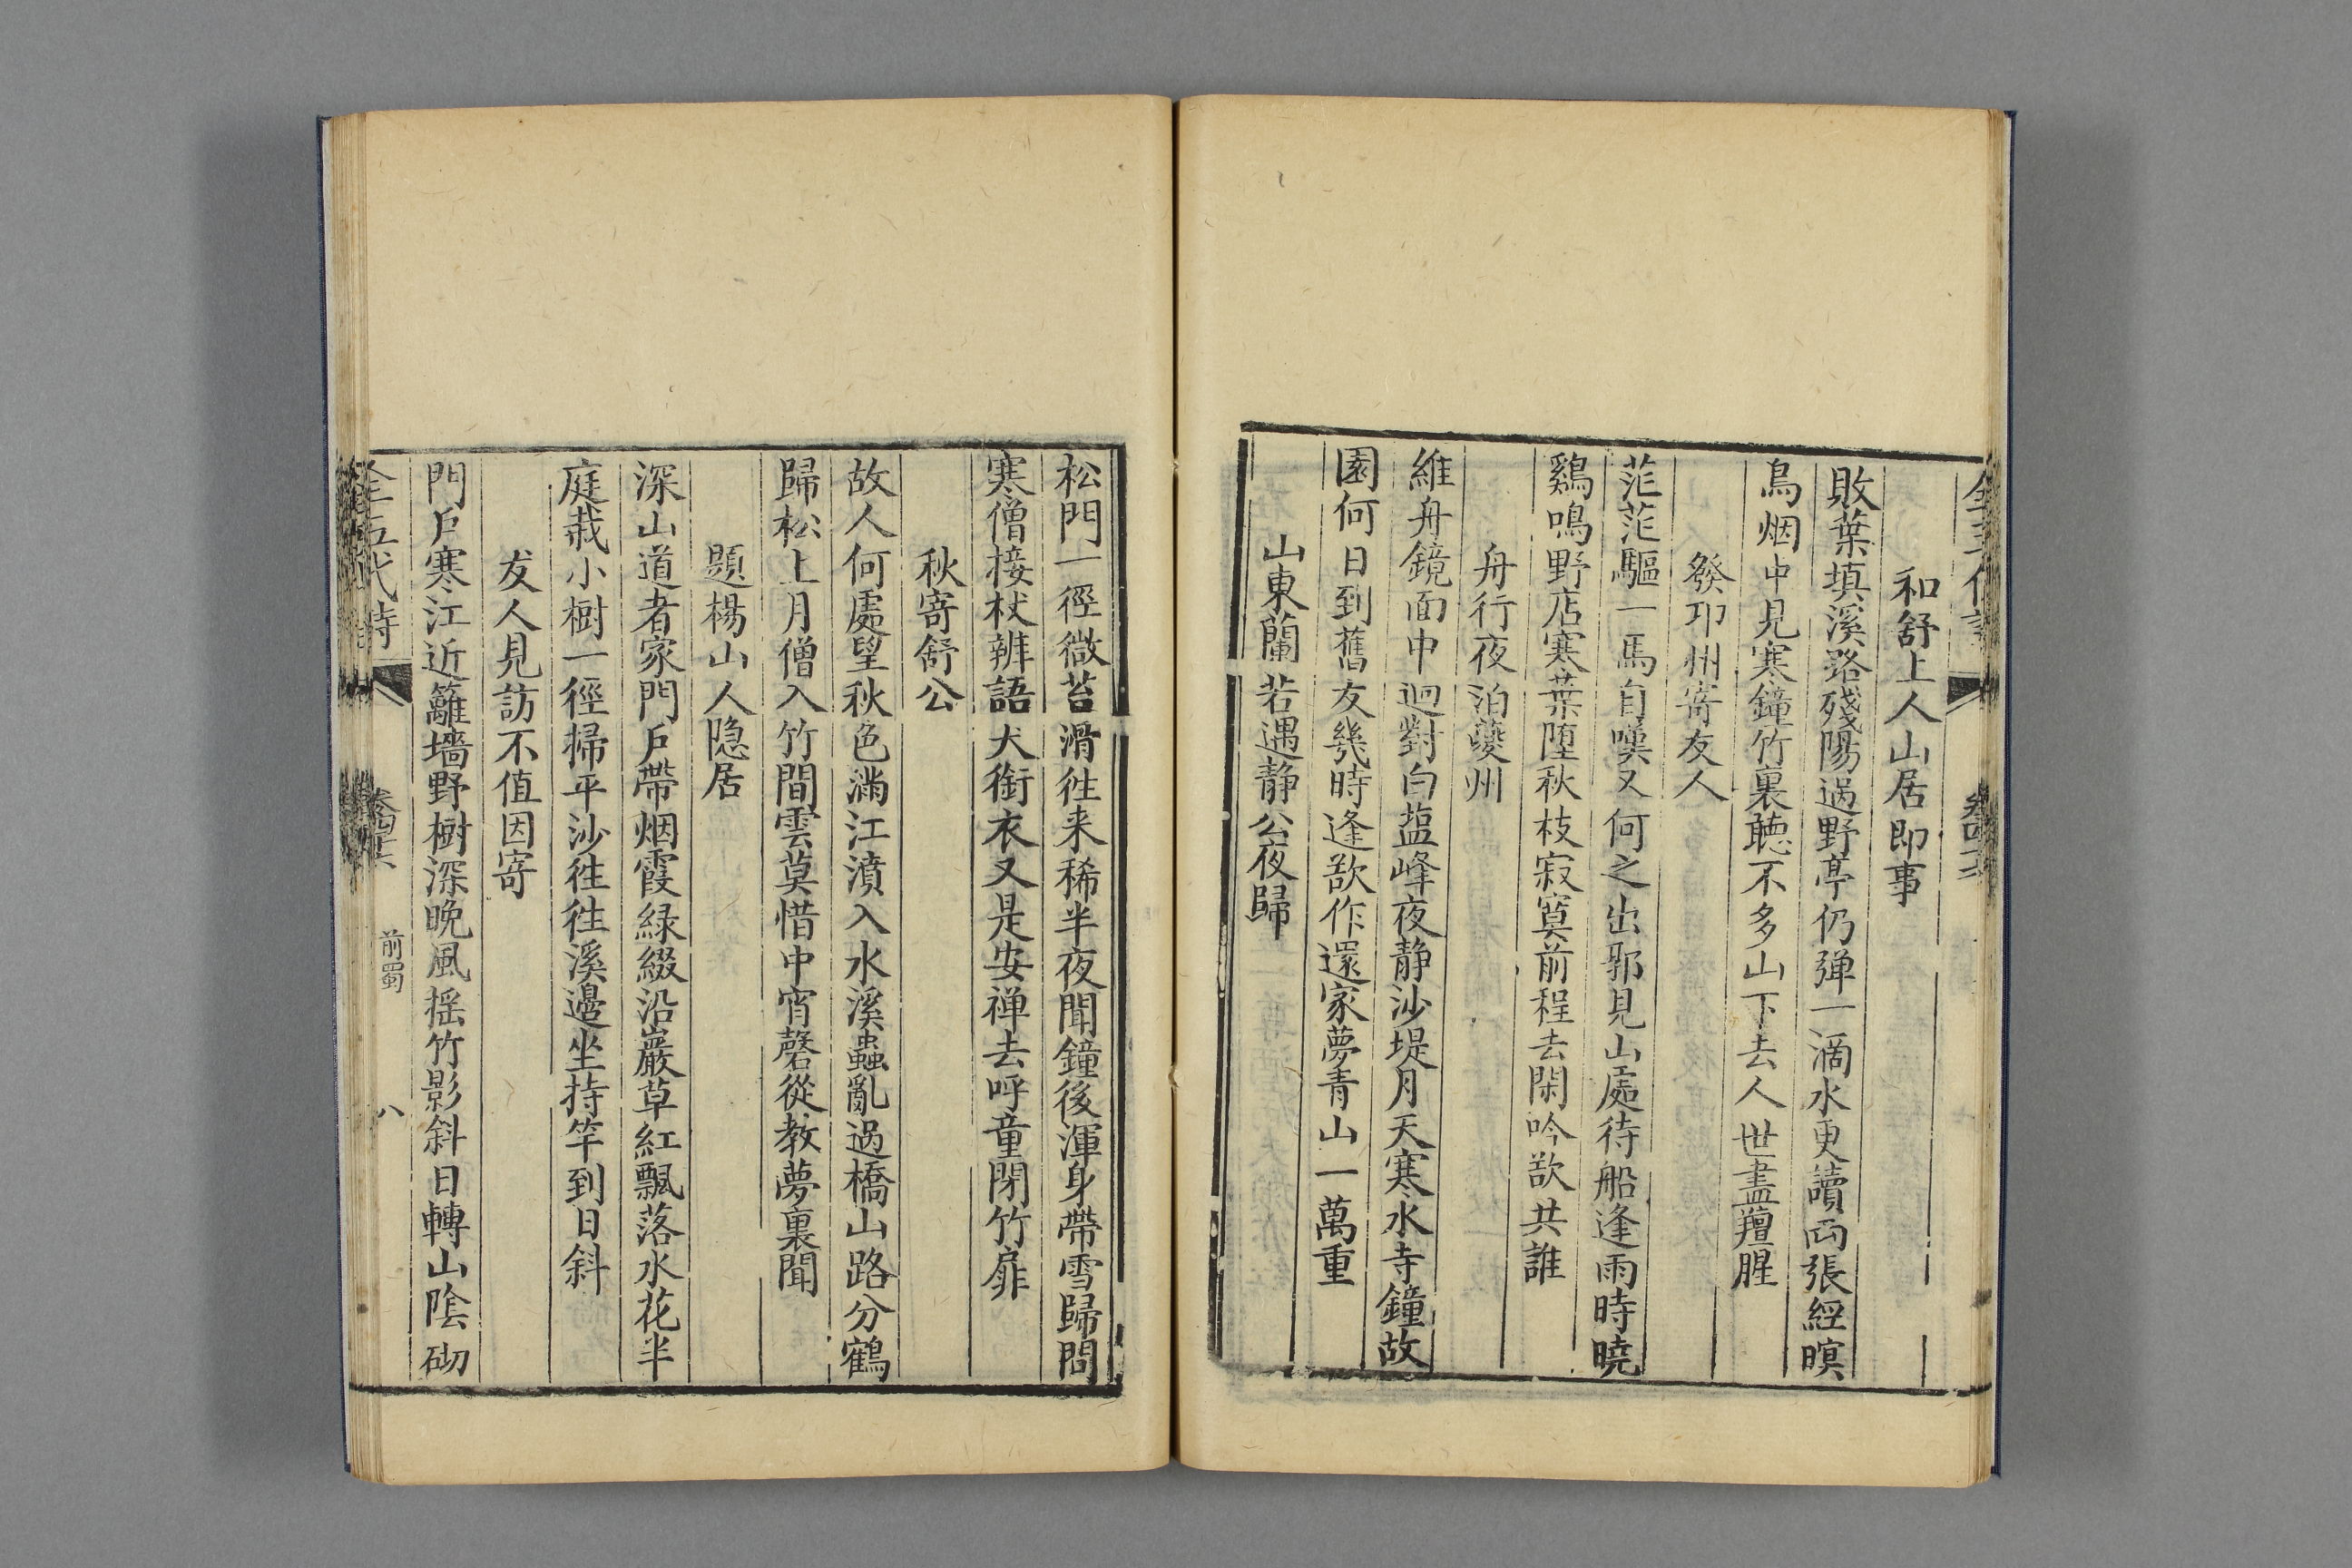 和舒上人山居即事
敗葉填溪路殘陽過野亭仍彈一滴水更讀兩張經暝
鳥烟中見寒鐘竹裏聴不多山下去人世盡羶腥
發卭州寄友人
茫茫驅一馬自嘆又何之出郭見山處待船逢雨時曉
鷄鳴野店寒葉墮秋枝寂寞前程去閑吟欲共誰
舟行夜泊夔州
維舟鏡面中逈對白塩峰夜静沙堤月天寒水寺鐘故
園何日到舊友幾時逢欲作還家夢青山一萬重
山東蘭若遇静公夜歸
松門一徑微苔滑徃来稀半夜聞鐘後渾身帶雪歸問
寒僧接杖辨語犬銜衣又是安禅去呼童閉竹扉
秋寄舒公
故人何處望秋色滿江濆入水溪蟲亂過橋山路分鶴
歸松上月僧入竹間雲莫惜中宵磬從教夢裏聞
題楊山人隐居
深山道者家門戶帶烟霞綠綴沿巖草紅飄落水花半
庭栽小樹一徑掃平沙徃徃溪邊坐持竿到日斜
友人見訪不值因寄
門戶寒江近籬墻野樹深晩風揺竹影斜日轉山陰砌
全五代詩
卷四十六
前蜀
八